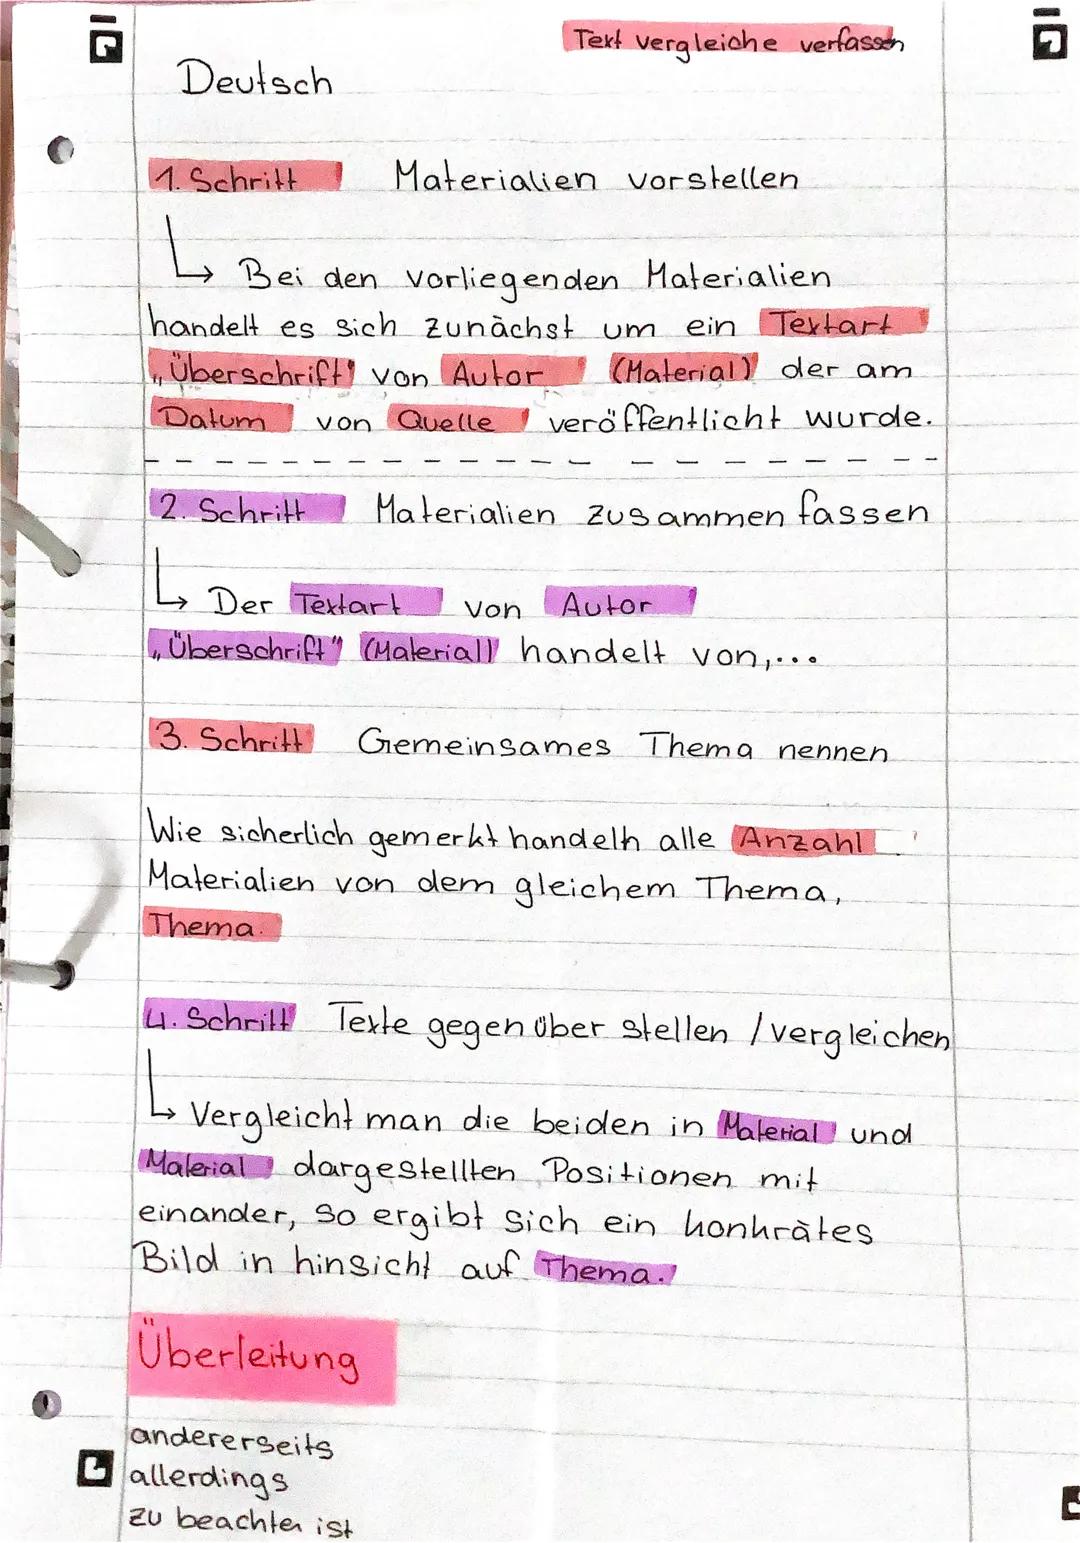 Text vergleiche verfassen
Deutsch
1. Schritt Materialien vorstellen
↳ Bei den vorliegenden Materialien
handelt es sich zunächst um ein Textart
„Überschrift" von Autor (Material) der am
Datum von Quelle veröffentlicht wurde.
2. Schritt Materialien zusammen fassen
↳ Der Textart von Autor
„Überschrift" (Material) handelt von,...
3. Schritt Gemeinsames Thema nennen
Wie sicherlich gemerkt handelh alle Anzahl
Materialien von dem gleichem Thema,
Thema.
4. Schritt Texte gegenüber stellen / vergleichen
↳ Vergleicht man die beiden in Material und
Material dargestellten Positionen mit
einander, so ergibt sich ein honhrätes
Bild in hinsicht auf Thema.
Überleitung
andererseits
allerdings
zu beachten ist